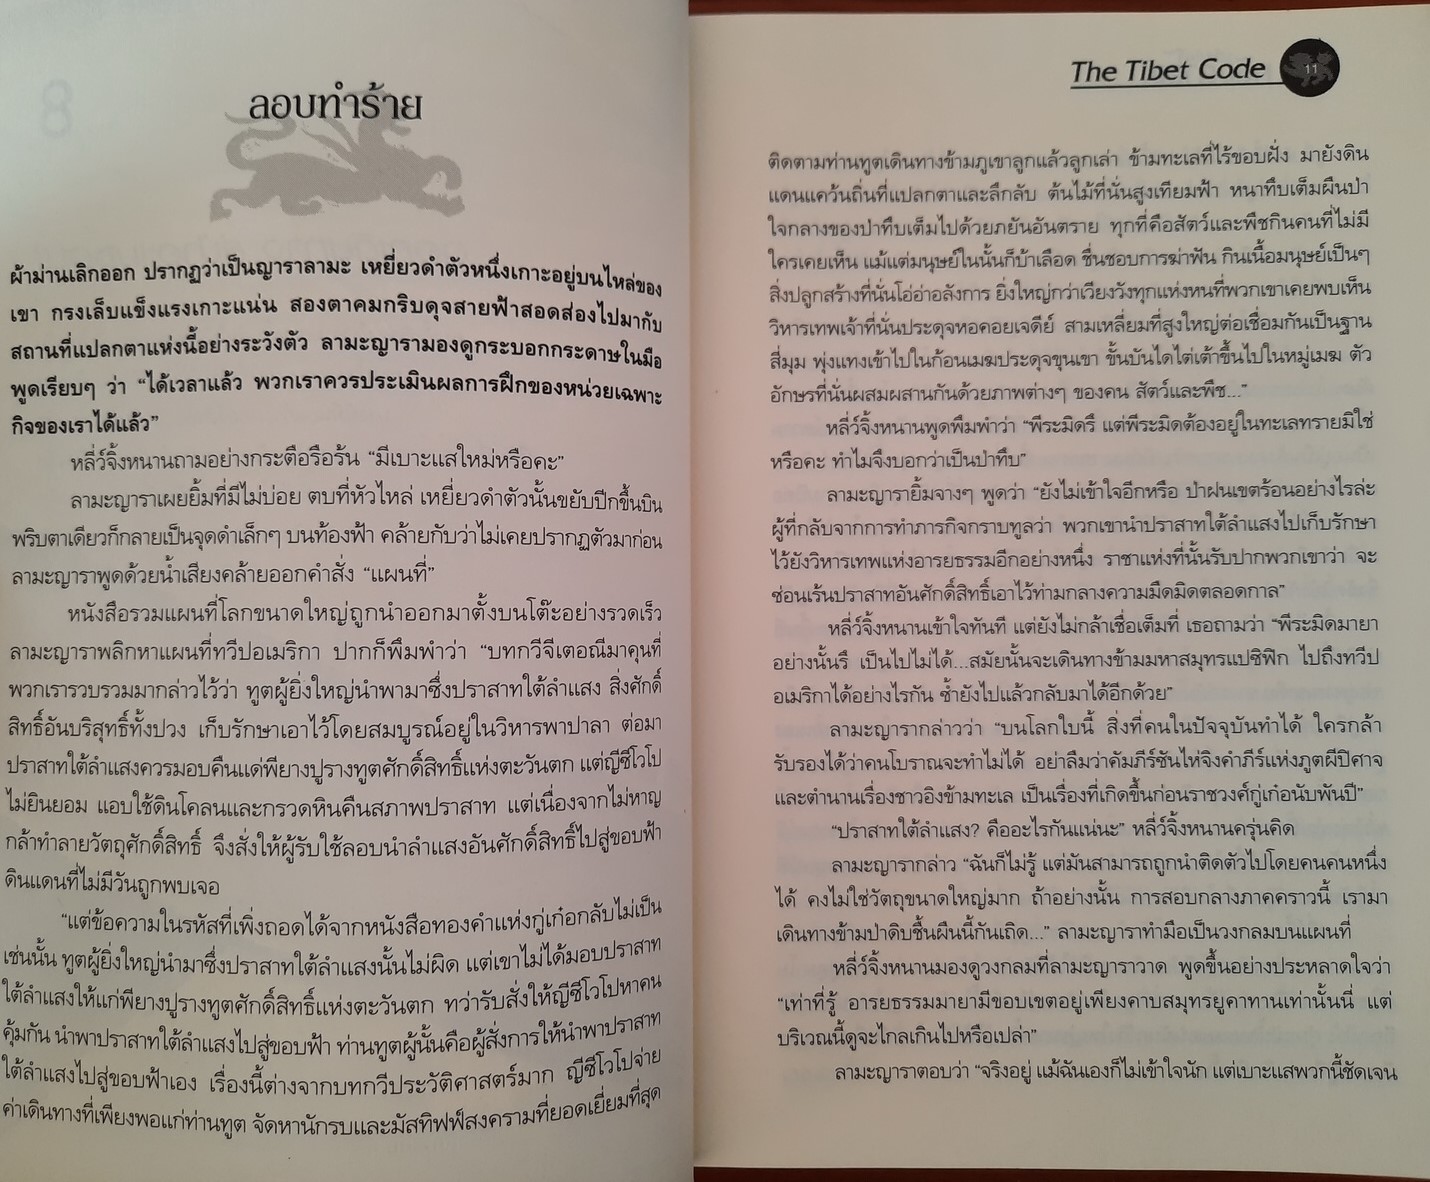 ลอบทำร้าย
ผ้าม่านเลิกออก ปรากฏว่าเป็นญาราลามะ เหยี่ยวดำตัวหนึ่งเกาะอยู่บนไหล่ของ
เขา กรงเล็บแข็งแรงเกาะแน่น สองตาคมกริบดุจสายฟ้าสอดส่องไปมากับ
สถานที่แปลกตาแห่งนี้อย่างระวังตัว ลามะญารามองดูกระบอกกระดาษในมือ
พูดเรียบๆ ว่า “ได้เวลาแล้ว พวกเราควรประเมินผลการฝึกของหน่วยเฉพาะ
กิจของเราได้แล้ว”
หลี่ว์จิ้งหนานถามอย่างกระตือรือร้น “มีเบาะแสใหม่หรือคะ”
ลามะญาราเผยยิ้มที่มีไม่บ่อย ตบที่หัวไหล่ เหยี่ยวดำตัวนั้นขยับปีกขึ้นบิน
พริบตาเดียวก็กลายเป็นจุดดำเล็กๆ บนท้องฟ้า คล้ายกับว่าไม่เคยปรากฏตัวมาก่อน
ลามะญาราพูดด้วยน้ำเสียงคล้ายออกคำสั่ง “แผนที่”
หนังสือรวมแผนที่โลกขนาดใหญ่ถูกนำออกมาตั้งบนโต๊ะอย่างรวดเร็ว
ลามะญาราพลิกหาแผนที่ทวีปอเมริกา ปากก็พึมพำว่า “บทกวีจีเตอณีมาคุนที่
พวกเรารวบรวมมากล่าวไว้ว่า ทูตผู้ยิ่งใหญ่นำพามาซึ่งปราสาทใต้ลำแสง สิ่งศักดิ์
สิทธิ์อันบริสุทธิ์ทั้งปวง เก็บรักษาเอาไว้โดยสมบูรณ์อยู่ในวิหารพาปาลา ต่อมา
ปราสาทใต้ลำแสงควรมอบคืนแด่พียางปูรางทูตศักดิ์สิทธิ์แห่งตะวันตก แต่ญีซีโวโป
ไม่ยินยอม แอบใช้ดินโคลนและกรวดหินคืนสภาพปราสาท แต่เนื่องจากไม่หาญ
กล้าทำลายวัตถุศักดิ์สิทธิ์ จึงสั่งให้ผู้รับใช้ลอบนำลำแสงอันศักดิ์สิทธิ์ไปสู่ขอบฟ้า
ดินแดนที่ไม่มีวันถูกพบเจอ
“แต่ข้อความในรหัสที่เพิ่งถอดได้จากหนังสือทองคำแห่งกู่เก๋อกลับไม่เป็น
เช่นนั้น ทูตผู้ยิ่งใหญ่นำมาซึ่งปราสาทใต้ลำแสงนั้นไม่ผิด แต่เขาไม่ได้มอบปราสาท
ใต้ลำแสงให้แก่พียางปูรางทูตศักดิ์สิทธิ์แห่งตะวันตก ทว่ารับสั่งให้ญีซีโวโปหาคน
คุ้มกัน นำพาปราสาทใต้ลำแสงไปสู่ขอบฟ้า ท่านทูตผู้นั้นคือผู้สั่งการให้นำพาปราสาท
ใต้ลำแสงไปสู่ขอบฟ้าเอง เรื่องนี้ต่างจากบทกวีประวัติศาสตร์มาก ญีซีโวโปจ่าย
ค่าเดินทางที่เพียงพอแก่ท่านทูต จัดหานักรบและมัสทิฟฟ์สงครามที่ยอดเยี่ยมที่สุด
The Tibet Code 11
ติดตามท่านทูตเดินทางข้ามภูเขาลูกแล้วลูกเล่า ข้ามทะเลที่ไร้ขอบฝั่ง มายังดิน
แดนแคว้นถิ่นที่แปลกตาและลึกลับ ต้นไม้ที่นั่นสูงเทียมฟ้า หนาทึบเต็มผืนป่า
ใจกลางของป่าทึบเต็มไปด้วยภยันอันตราย ทุกที่คือสัตว์และพืชกินคนที่ไม่มี
ใครเคยเห็น แม้แต่มนุษย์ในนั้นก็บ้าเลือด ชื่นชอบการฆ่าฟัน กินเนื้อมนุษย์เป็นๆ
สิ่งปลูกสร้างที่นั่นโอ่อ่าอลังการ ยิ่งใหญ่กว่าเวียงวังทุกแห่งหนที่พวกเขาเคยพบเห็น
วิหารเทพเจ้าที่นั่นประดุจหอคอยเจดีย์ สามเหลี่ยมที่สูงใหญ่ต่อเชื่อมกันเป็นฐาน
สี่มุม พุ่งแทงเข้าไปในก้อนเมฆประดุจขุนเขา ขั้นบันไดไต่เต้าขึ้นไปในหมู่เมฆ ตัว
อักษรที่นั่นผสมผสานกันด้วยภาพต่างๆ ของคน สัตว์และพืช...”
หลี่ว์จิ้งหนานพูดพึมพำว่า “พีระมิดรึ แต่พีระมิดต้องอยู่ในทะเลทรายมิใช่
หรือคะ ทำไมจึงบอกว่าเป็นป่าทึบ”
ลามะญารายิ้มจางๆ พูดว่า “ยังไม่เข้าใจอีกหรือ ป่าฝนเขตร้อนอย่างไรล่ะ
ผู้ที่กลับจากการทำภารกิจกราบทูลว่า พวกเขานำปราสาทใต้ลำแสงไปเก็บรักษา
ไว้ยังวิหารเทพแห่งอารยธรรมอีกอย่างหนึ่ง ราชาแห่งที่นั้นรับปากพวกเขาว่า จะ
ซ่อนเร้นปราสาทอันศักดิ์สิทธิ์เอาไว้ท่ามกลางความมืดมิดตลอดกาล”
หลี่ว์จิ้งหนานเข้าใจทันที แต่ยังไม่กล้าเชื่อเต็มที่ เธอถามว่า “พีระมิดมายา
อย่างนั้นรึ เป็นไปไม่ได้...สมัยนั้นจะเดินทางข้ามมหาสมุทรแปซิฟิก ไปถึงทวีป
อเมริกาได้อย่างไรกัน ซ้ำยังไปแล้วกลับมาได้อีกด้วย”
ลามะญารากล่าวว่า “บนโลกใบนี้ สิ่งที่คนในปัจจุบันทำได้ ใครกล้า
รับรองได้ว่าคนโบราณจะทำไม่ได้ อย่าลืมว่าคัมภีร์ซันไห่จิงคำภีร์แห่งภูตผีปีศาจ
และตำนานเรื่องชาวอิงข้ามทะเล เป็นเรื่องที่เกิดขึ้นก่อนราชวงศ์กู่เก๋อนับพันปี”
“ปราสาทใต้ลำแสง? คืออะไรกันแน่นะ” หลี่ว์จิ้งหนานครุ่นคิด
ลามะญารากล่าว “ฉันก็ไม่รู้ แต่มันสามารถถูกนำติดตัวไปโดยคนคนหนึ่ง
ได้ คงไม่ใช่วัตถุขนาดใหญ่มาก ถ้าอย่างนั้น การสอบกลางภาคคราวนี้ เรามา
เดินทางข้ามป่าดิบชื้นผืนนี้กันเถิด...” ลามะญาราทำมือเป็นวงกลมบนแผนที่
หลี่ว์จิ้งหนานมองดูวงกลมที่ลามะญาราวาด พูดขึ้นอย่างประหลาดใจว่า
“เท่าที่รู้ อารยธรรมมายามีขอบเขตอยู่เพียงคาบสมุทรยูคาทานเท่านั้นนี่ แต่
บริเวณนี้ดูจะไกลเกินไปหรือเปล่า”
ลามะญาราตอบว่า “จริงอยู่ แม้ฉันเองก็ไม่เข้าใจนัก แต่เบาะแสพวกนี้ชัดเจน